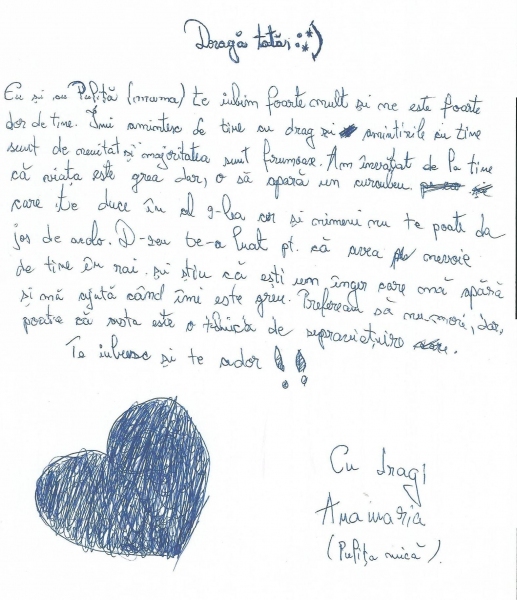 Dragă tată: :*)
Eu și cu Pufiță (mama) te iubim foarte mult și ne este foarte
dor de tine. Îmi amintesc de tine cu drag și amintirile cu tine
sunt de neuitat și majoritatea sunt frumoase. Am învățat de la tine
că viața este grea dar, o să apară un curcubeu
care te duce în al 9-lea cer și nimeni nu te poate da
jos de acolo. D-zeu te-a luat pt. că avea nevoie
de tine în rai. și știu că ești un înger care mă apără
și mă ajută când îmi este greu. Preferam să nu mori, dar,
poate că asta este o tehnica de supraviețuire.
Te iubesc și te ador !!
Cu drag,
Anamaria
(Pufița mică).